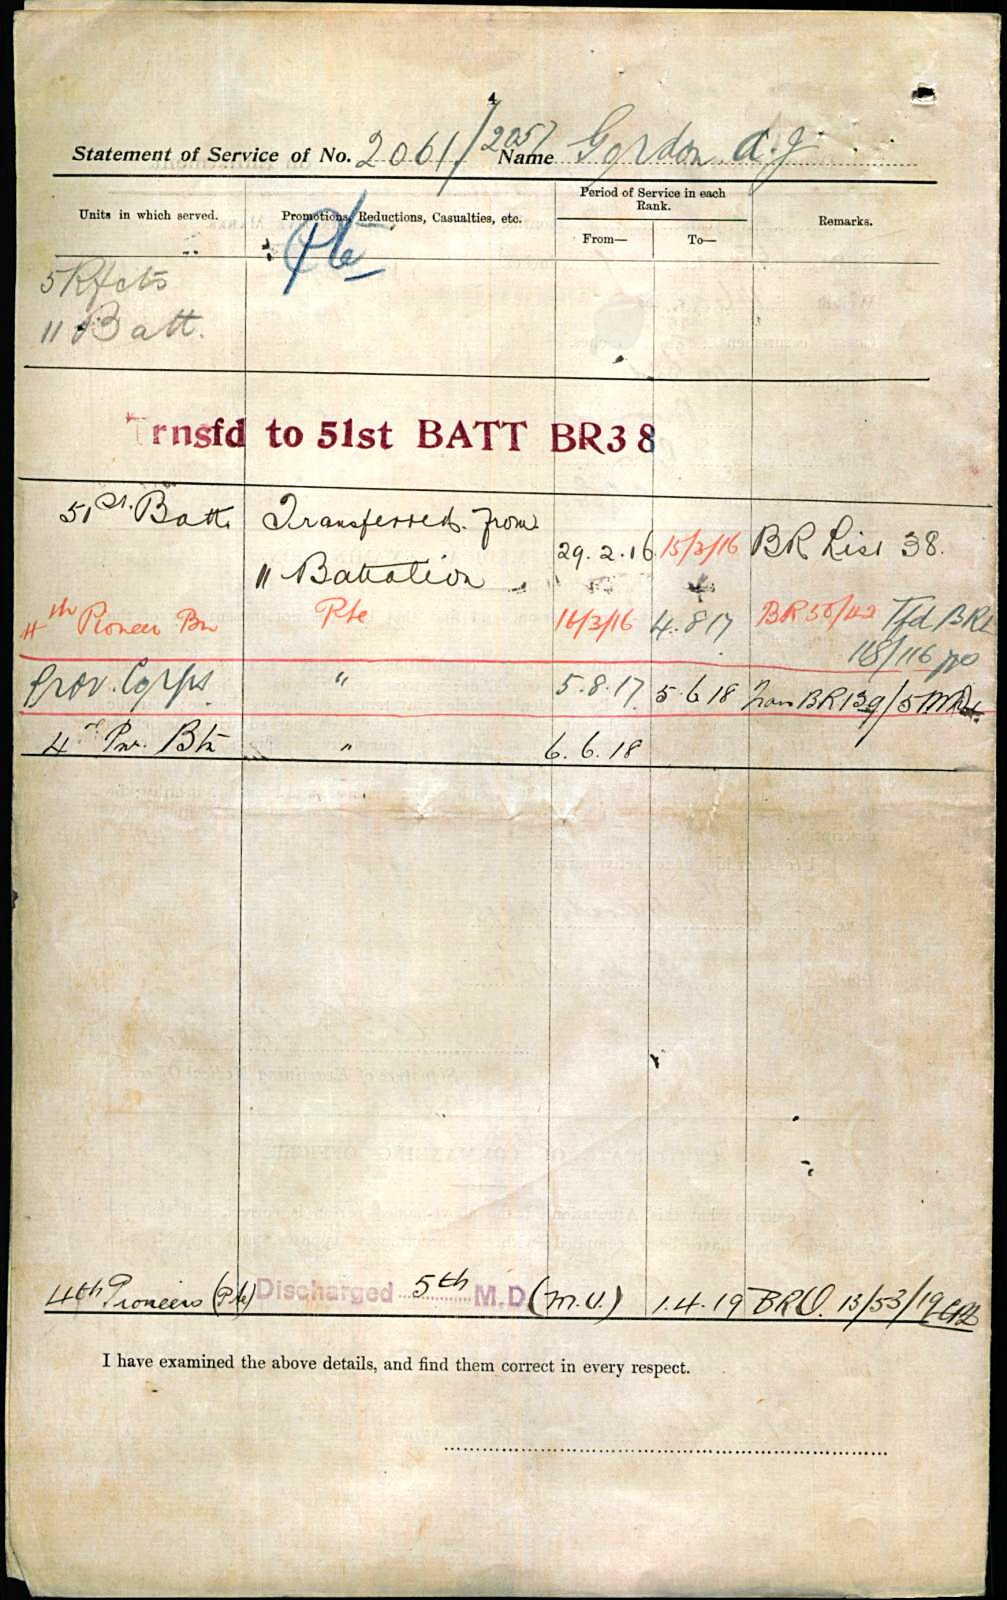 Statement of Service of No. 2061/2057 Name Gordon A.J
Units in which served. Promotions, Reductions, Casualties, etc. Period of Service in each Rank. From— To— Remarks.
Pte
5 Rfcts
11 Batt.
Trnsfd to 51st BATT BR38
51st. Batt. Transferred from 29.2.16 15/3/16 BR List 38.
11 Battalion
4th Pioneer Bn Pte 16/3/16 4.8.17 BR38/42 Tfd BRL
118/116
Prov. Corps " 5.8.17 5.6.18 Trans BR 139/5
4 Pnr. Btn " 6.6.18
4th Pioneers (Pte) Discharged 5th M.D (M.U.) 1.4.19 BRO. 13/53/19
I have examined the above details, and find them correct in every respect.